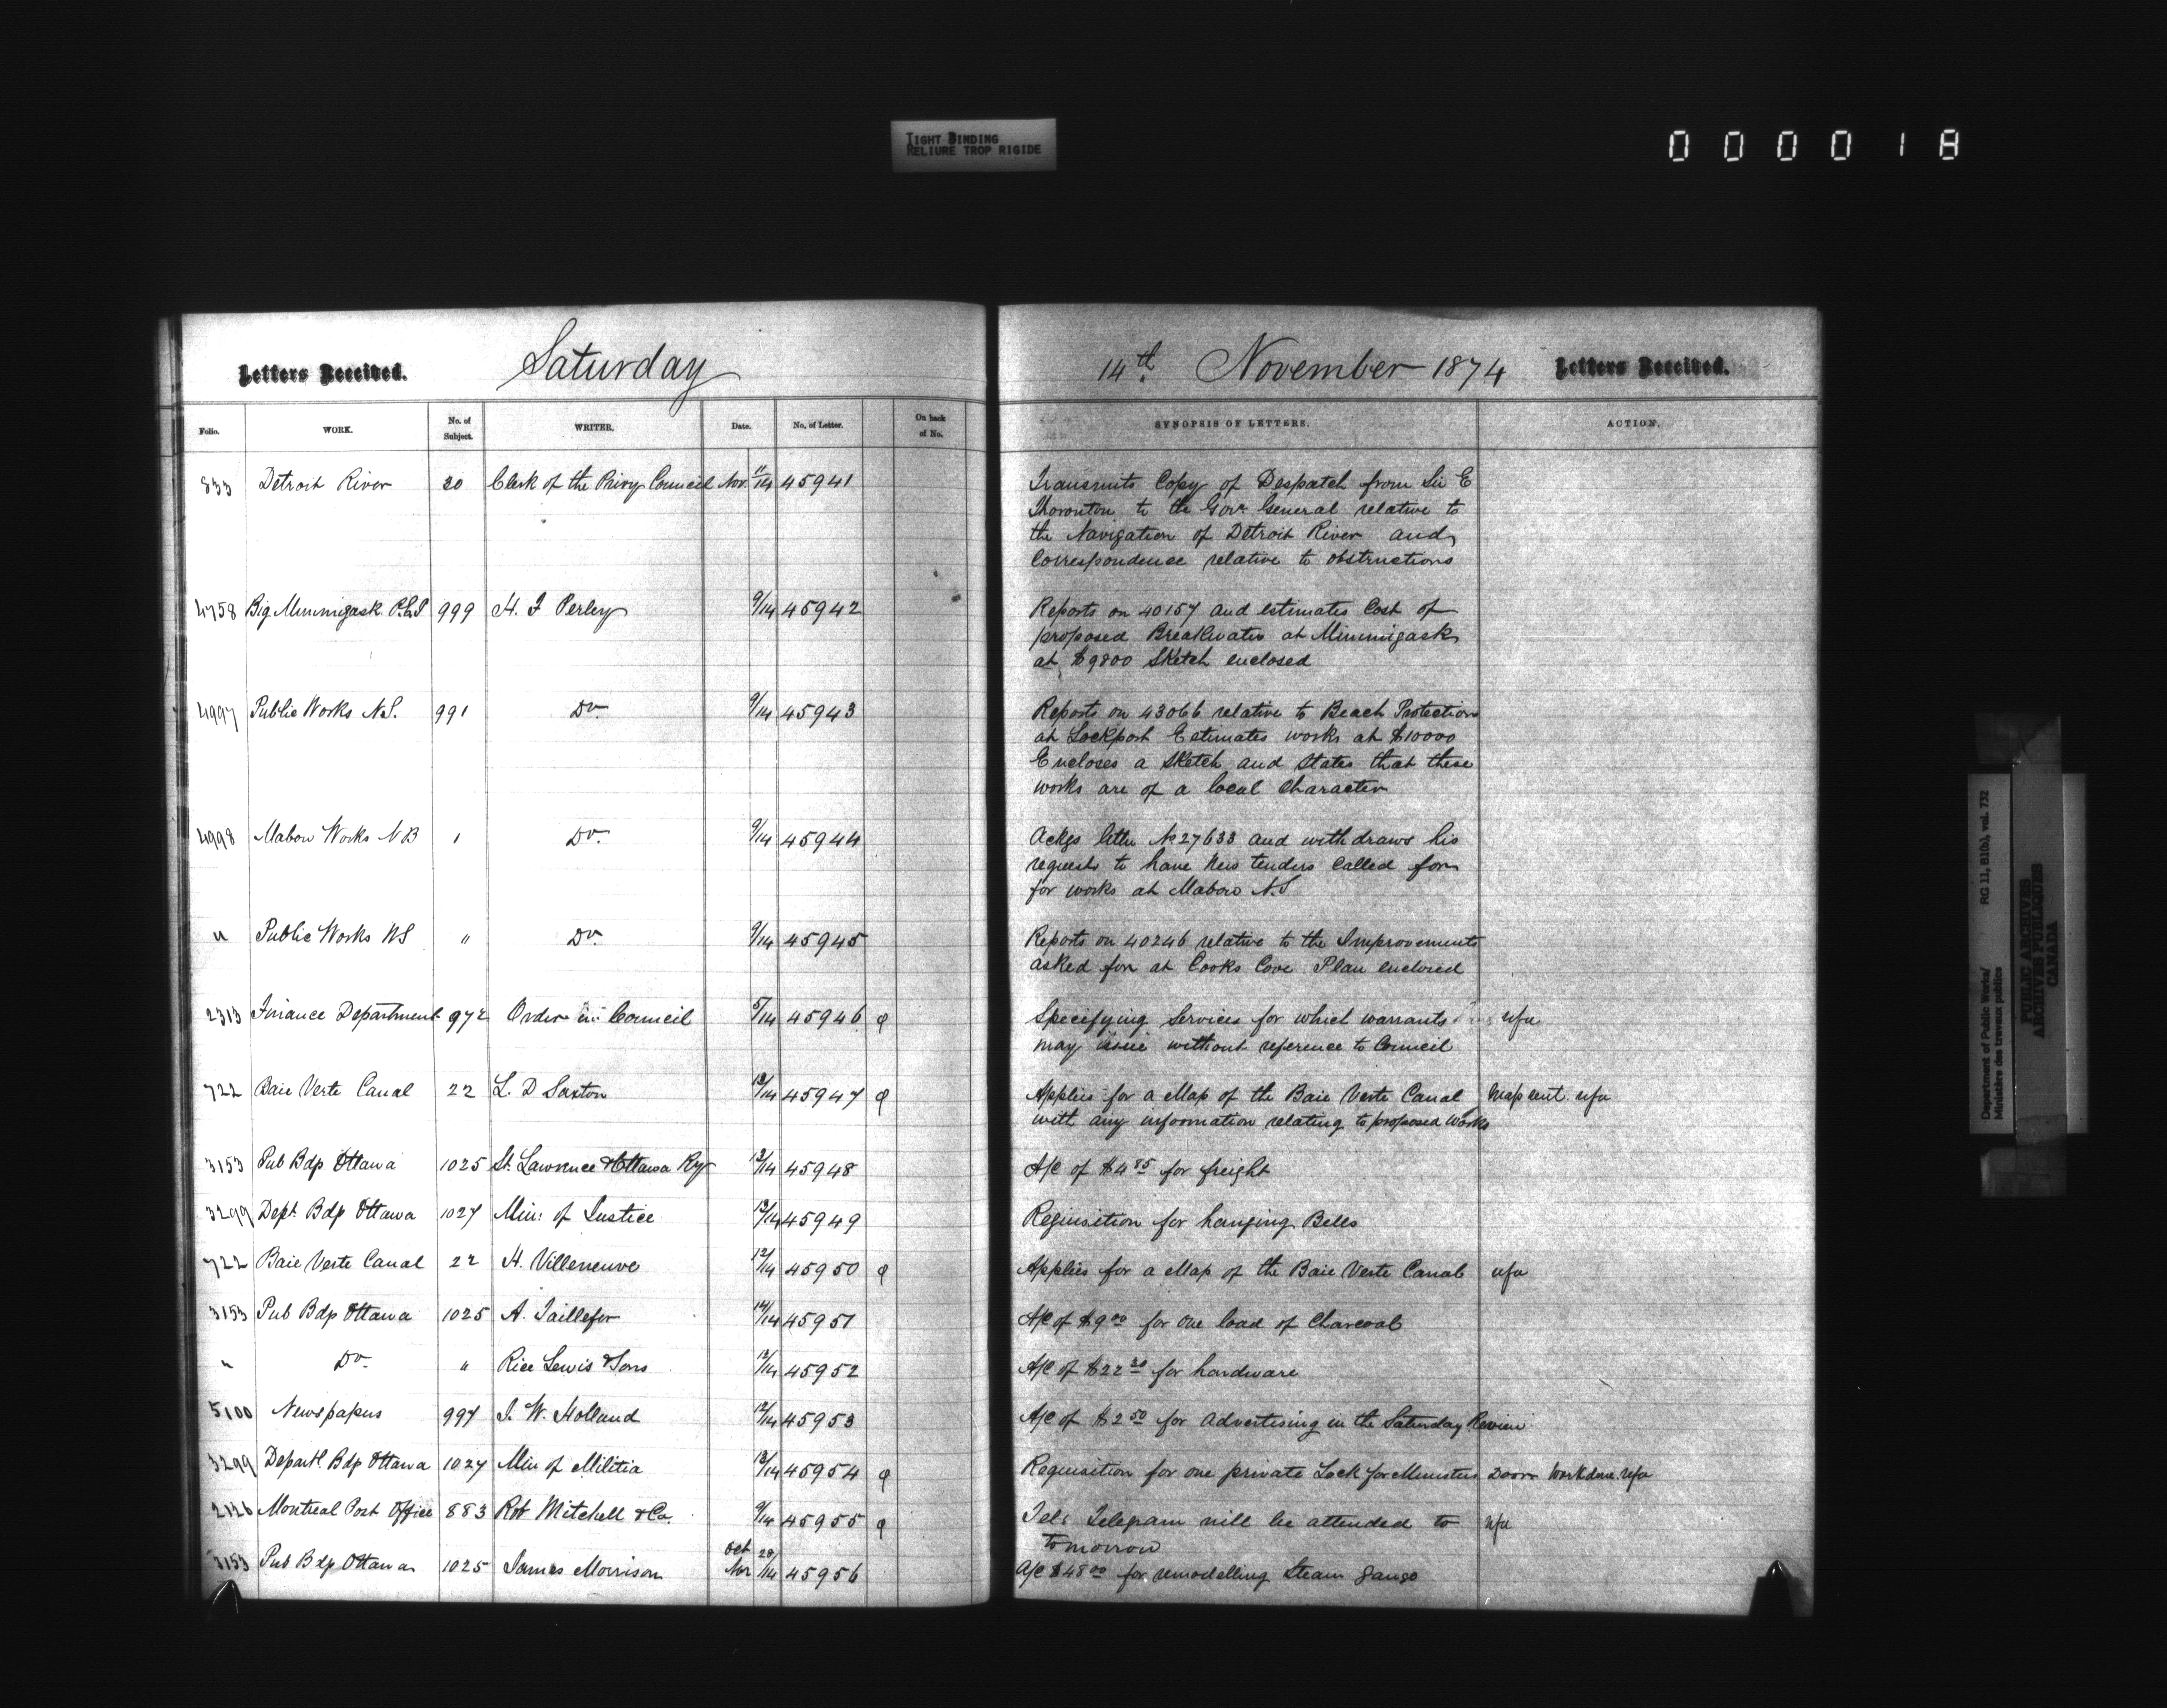 TIGHT BINDING
RELIURE TROP RIGIDE
000018
Letters Received. Saturday 14th November 1874 Letters Received.
Folio. WORK. No. of Subject. WRITER. Date. No. of Letter. On back of No. SYNOPSIS OF LETTERS. ACTION.
833 Detroit River 20 Clerk of the Privy Council Nov. 11/14 45941 Transmits Copy of Despatch from Sir E
Thornton to the Govr General relative to
the Navigation of Detroit River and
Correspondence relative to obstructions
4758 Big Miminigask P.E.I 999 H. F Perley 9/14 45942 Reports on 40157 and estimates Cost of
proposed Breakwater at Miminigask
at $9800 Sketch enclosed
4997 Public Works N.S. 991 Do. 9/14 45943 Reports on 43066 relative to Beach Protection
at Lockport Estimates works at $10000
Encloses a Sketch and States that these
works are of a local Character
4998 Mabou Works N B 1 Do. 9/14 45944 Ackgs letter No 27633 and withdraws his
request to have New tenders Called for
for works at Mabou N.S
" Public Works NS " Do. 9/14 45945 Reports on 40246 relative to the Improvements
asked for at Cooks Cove Plan enclosed
2313 Finance Department 972 Order in Council 5/14 45946 Specifying Services for which warrants nfa
may issue without reference to Council
722 Baie Verte Canal 22 L. D Saxton 12/14 45947 Applies for a Map of the Baie Verte Canal Map sent. nfa
with any information relating to proposed Works
3153 Pub Bdp Ottawa 1025 St. Lawrence & Ottawa Ry 12/14 45948 A/C of $4 85 for freight
3299 Dept. Bdp Ottawa 1027 Min: of Justice 13/14 45949 Requisition for hanging Bells
722 Baie Verte Canal 22 H. Villeneuve 12/14 45950 Applies for a Map of the Baie Verte Canal nfa
3153 Pub Bdp Ottawa 1025 A. Taillefer 14/14 45951 A/C of $9 00 for one load of Charcoal
" Do. " Rice Lewis & Sons 12/14 45952 A/C of $22 20 for hardware
5100 Newspapers 997 J. W. Holland 12/14 45953 A/C of $2 50 for Advertising in the Saturday Review
3299 Departl. Bdp Ottawa 1027 Min of Militia 13/14 45954 Requisition for one private Lock for Ministers Door Work done. nfa
2126 Montreal Post Office 883 Rob Mitchell & Co. 9/14 45955 Tel: Telegram will be attended to nfa
tomorrow
3153 Pub Bdp Ottawa 1025 James Morrison Oct 28/ Nov /14 45956 A/C $48 00 for remodelling Steam gauge
Department of Public Works/ RG 11, B1(b), vol. 732
Ministère des travaux publics
PUBLIC ARCHIVES
ARCHIVES PUBLIQUES
CANADA